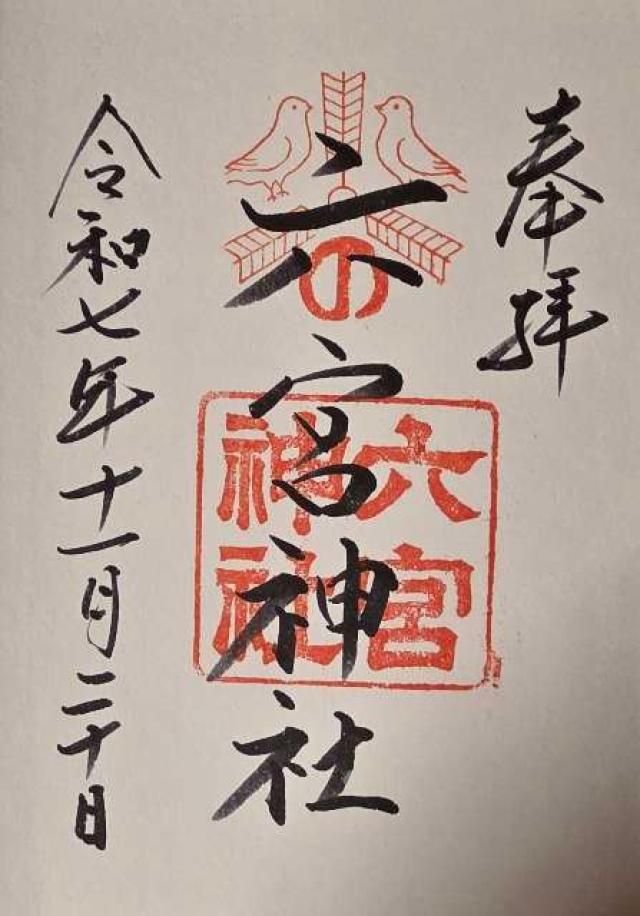 奉拝
六宮神社
の
六宮
神社
令和七年十一月二十日